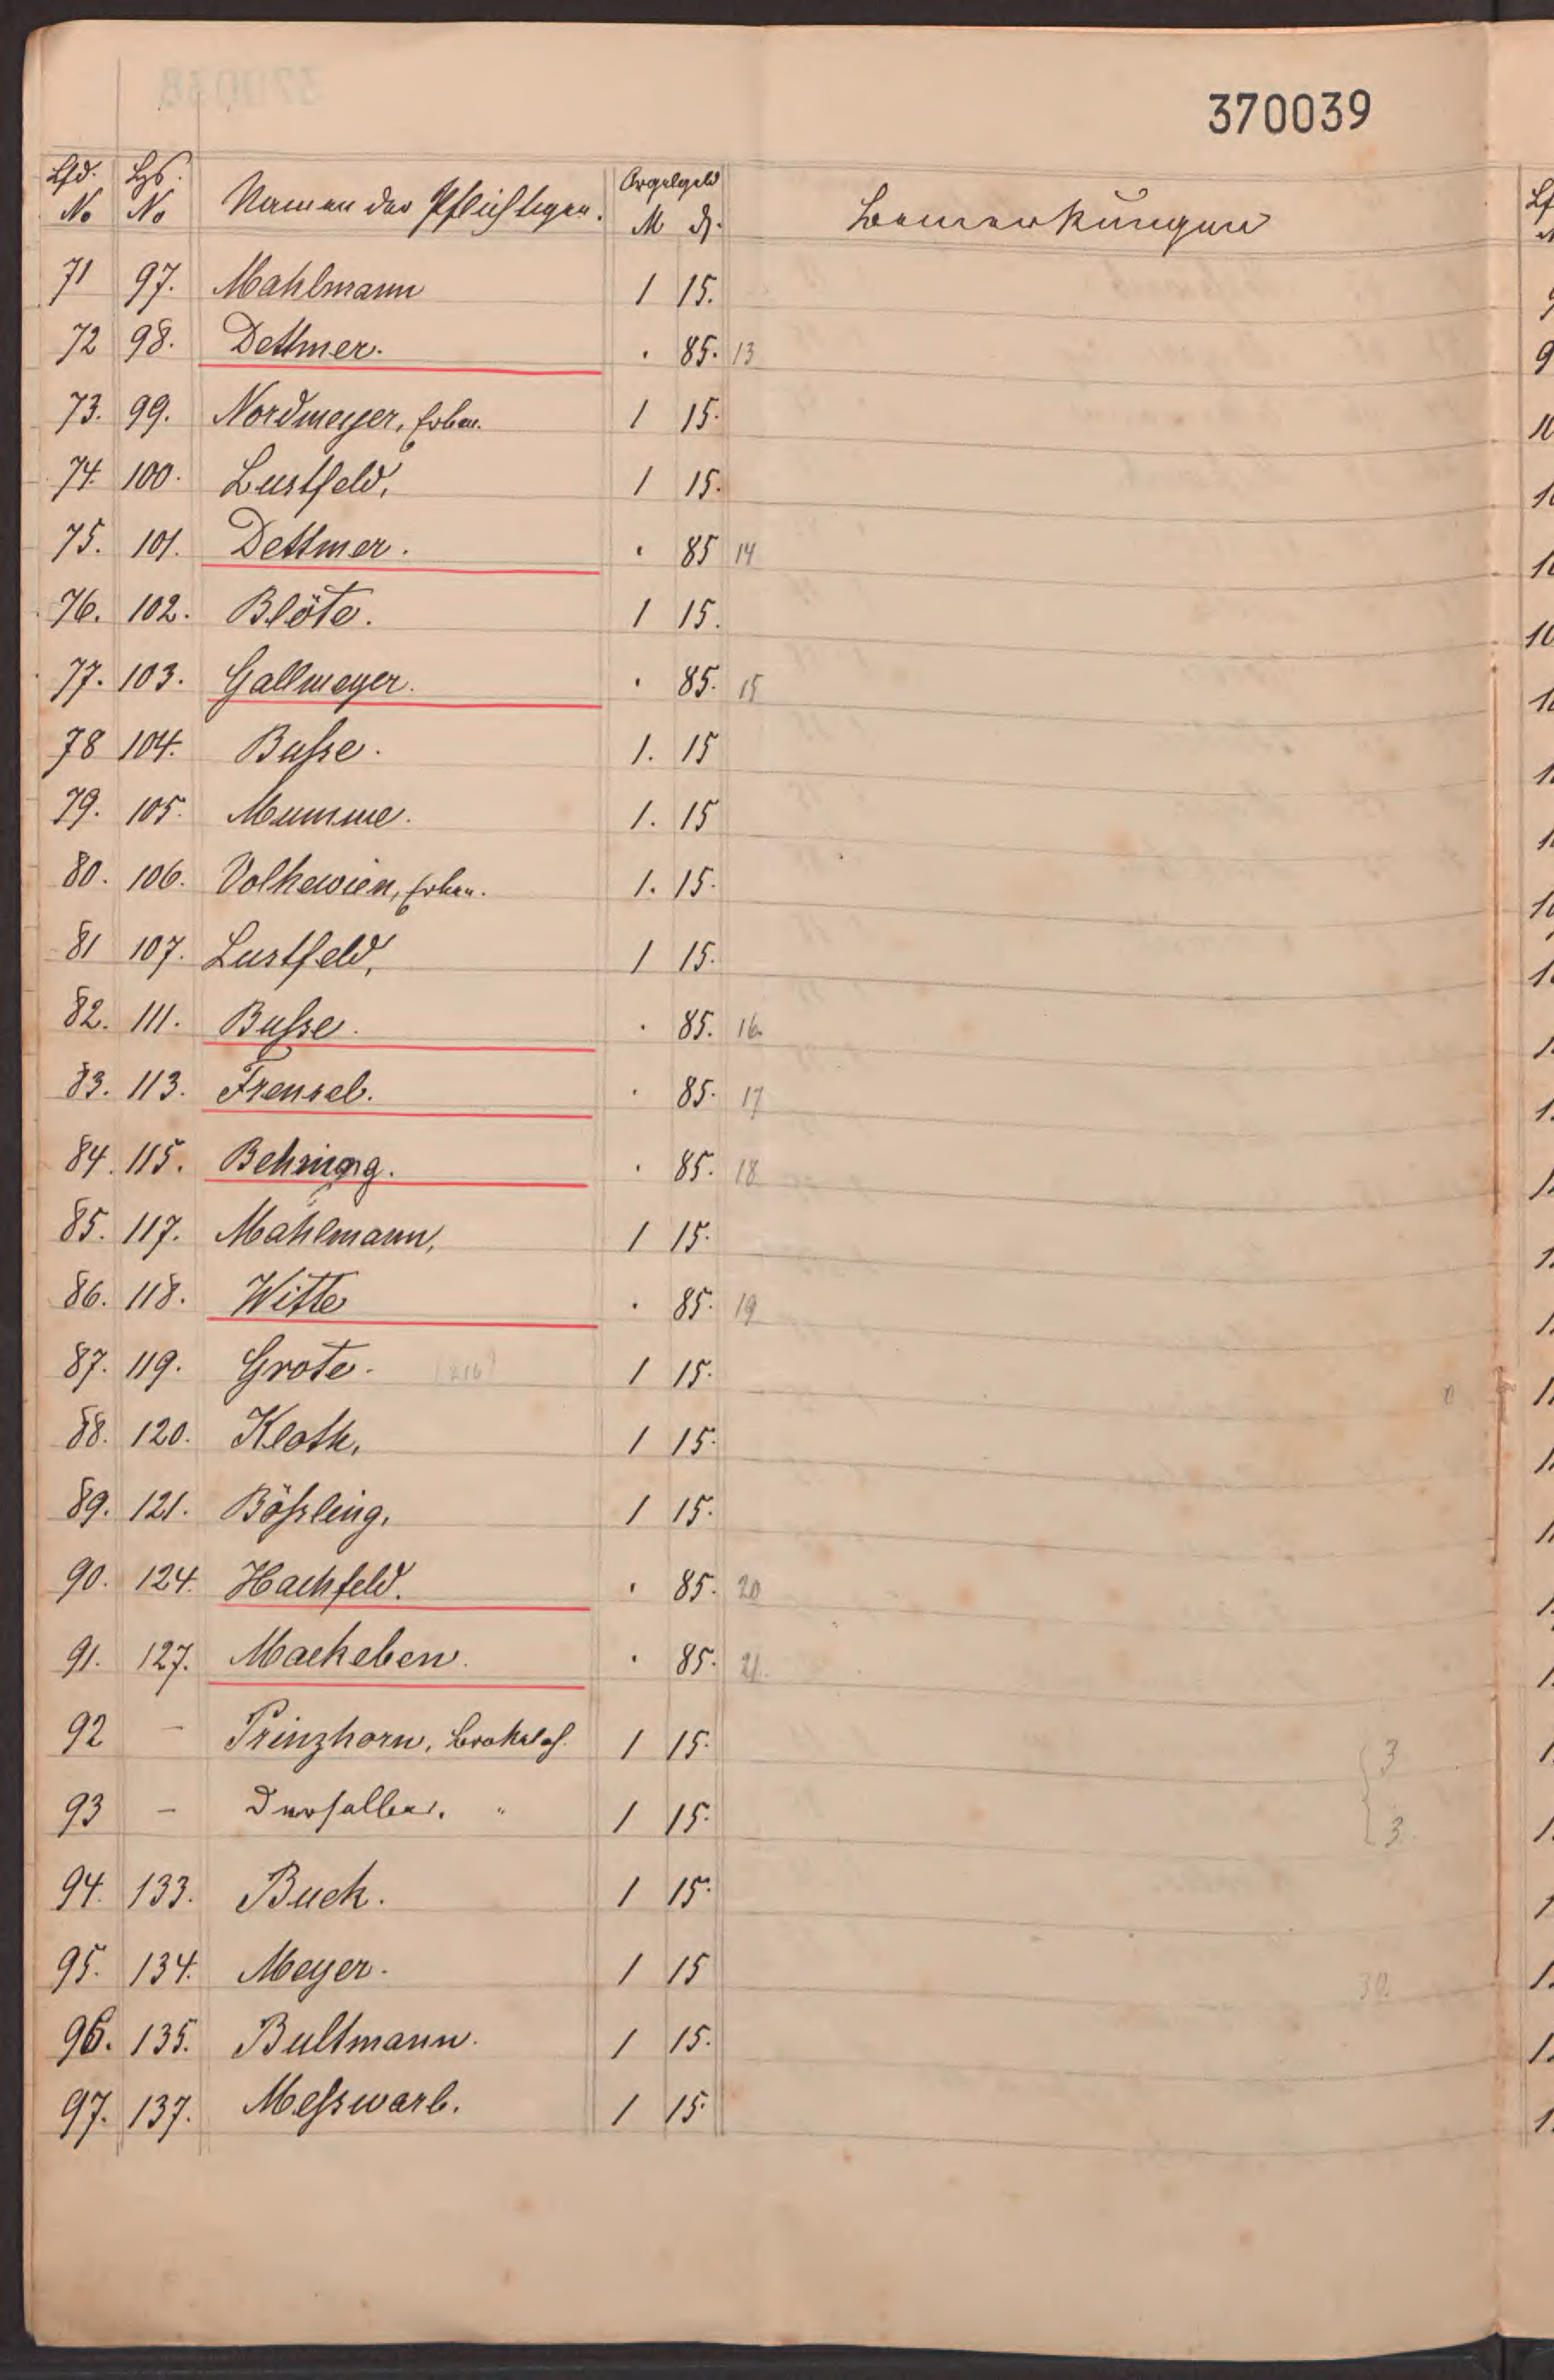 370039
Lfd. No Hs. No Namen der Pflichtigen. Orgelgeld M ₰. Bemerkungen
71 97. Mahlmann 1 15.
72 98. Dettmer. . 85. 13
73. 99. Nordmeyer, Erben. 1 15.
74. 100. Lustfeld, 1 15.
75. 101. Dettmer. . 85 14
76. 102. Blöte. 1 15.
77. 103. Gallmeyer. . 85. 15
78 104. Buſse. 1. 15
79. 105. Mumme. 1. 15
80. 106. Volkewien, Erben. 1. 15.
81 107. Lustfeld, 1 15.
82. 111. Buſse. . 85. 16
83. 113. Frensel. . 85. 17
84. 115. Behring. . 85. 18
85. 117. Mahlmann, 1 15.
86. 118. Witte . 85. 19
87. 119. Grote. (216) 1 15.
88. 120. Kloth, 1 15.
89. 121. Böſsling, 1 15.
90. 124. Hachfeld. . 85. 20
91. 127. Mackeben. . 85. 21.
92 – Prinzhorn, Brokeloh. 1 15. 3
93 – Derselbe. " 1 15. 3.
94. 133. Buck. 1 15.
95. 134. Meyer. 1 15 30.
96. 135. Bultmann. 1 15.
97. 137. Meſswarb. 1 15.